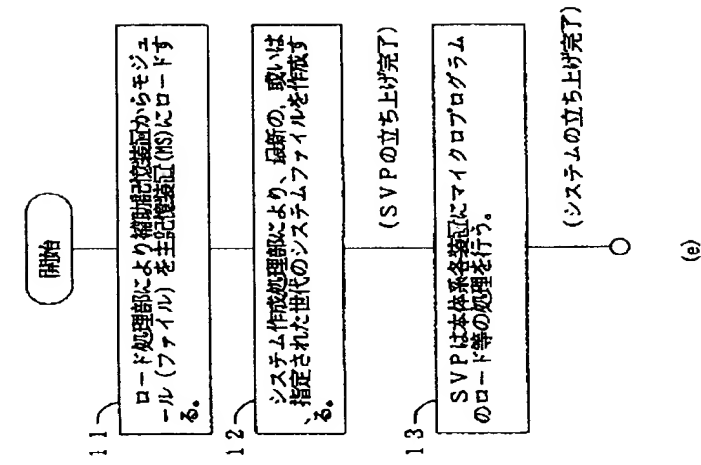 開始
11
ロード処理部により補助記憶装置からモジュ
ール(ファイル)を主記憶装置(MS)にロードす
る。
12
システム作成処理部により、最新の、或いは
指定された世代のシステムファイルを作成す
る。
(SVPの立ち上げ完了)
13
SVPは本体系各装置にマイクロプログラム
のロード等の処理を行う。
(システムの立ち上げ完了)
(e)